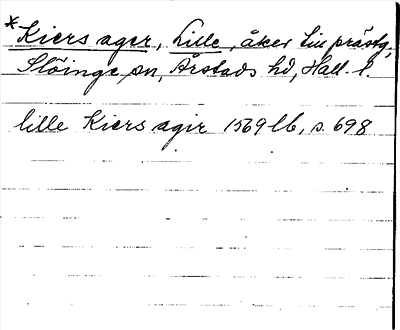 *Kiers ager, Lille, åker till prästg,
Slöinge sn, Årstads hd, Hall. l.
lille Kiers agir 1569 lb, s. 698